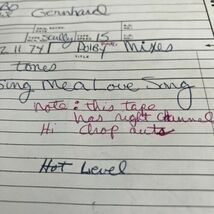 Gernhard
Scully 15
2.11.74 Dolby Mixes
TITLE
tones
Sing Me a Love Song
note: this tape
has right channel
Hi drop outs
Hot Level